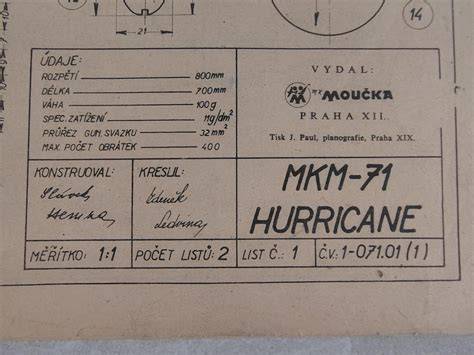 14
21
ÚDAJE:
ROZPĚTÍ 800mm
DÉLKA 700mm
VÁHA 100g
SPEC. ZATÍŽENÍ 11g/dm²
PRŮŘEZ GUM. SVAZKU 32 mm²
MAX. POČET OBRÁTEK 400
VYDAL:
MOUČKA
PRAHA XII.
Tisk J. Paul, planografie, Praha XIX.
KONSTRUOVAL:
KRESLIL:
Zdeněk
Ledvina
MKM-71
HURRICANE
MĚŘÍTKO: 1:1
POČET LISTŮ: 2
LIST Č.: 1
Č.V.: 1-071.01 (1)